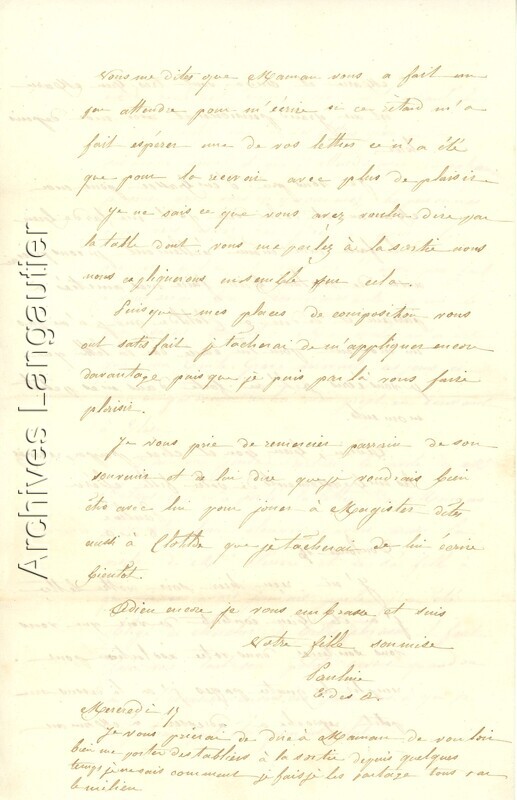 Vous me dites que Maman vous a fait un
peu attendre pour m'écrire si ce retard m'a
fait espérer une de vos lettres ce n'a été
que pour la recevoir avec plus de plaisir.
Je ne sais ce que vous avez voulu dire par
la table dont vous me parlez à la sortie nous
nous expliquerons ensemble sur cela.
Puisque mes places de composition vous
ont satisfait je tâcherai de m'appliquer encore
davantage puisque je puis par là vous faire
plaisir.
Je vous prie de remercier parrain de son
souvenir et de lui dire que je voudrais bien
être avec lui pour jouer à Magister dites
aussi à Clotilde que je tâcherai de lui écrire
bientôt.
Adieu encore je vous embrasse et suis
Votre fille soumise
Pauline
E. des A.
Mercredi 15
Je vous prierai de dire à Maman de vouloir
bien me porter des tabliers à la sortie depuis quelques
temps je ne sais comment je fais je les partage tous par
le milieu
Archives Langautier